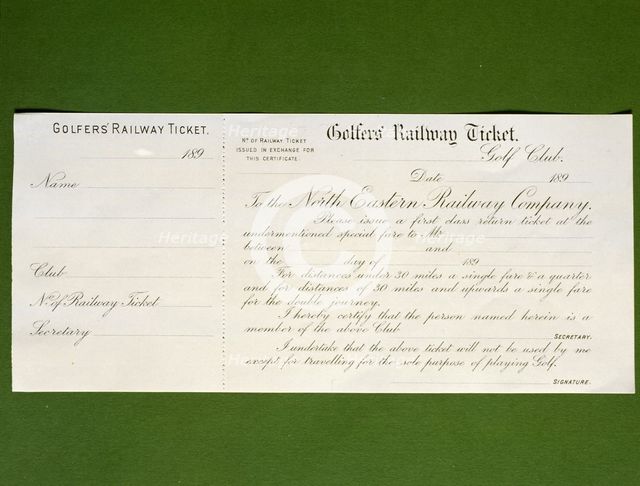 GOLFERS' RAILWAY TICKET.
189
Name
Club
No. of Railway Ticket
Secretary
No. OF RAILWAY TICKET
ISSUED IN EXCHANGE FOR
THIS CERTIFICATE
Golfers' Railway Ticket.
Golf Club.
Date 189
To the North Eastern Railway Company.
Please issue a first class return ticket at the
undermentioned special fare to Mr
between and
on the day of 189
For distances under 30 miles a single fare & a quarter
and for distances of 30 miles and upwards a single fare
for the double journey.
I hereby certify that the person named herein is a
member of the above Club
SECRETARY.
I undertake that the above ticket will not be used by me
except for travelling for the sole purpose of playing Golf.
SIGNATURE.
Heritage
Heritage
Heritage
Heritage